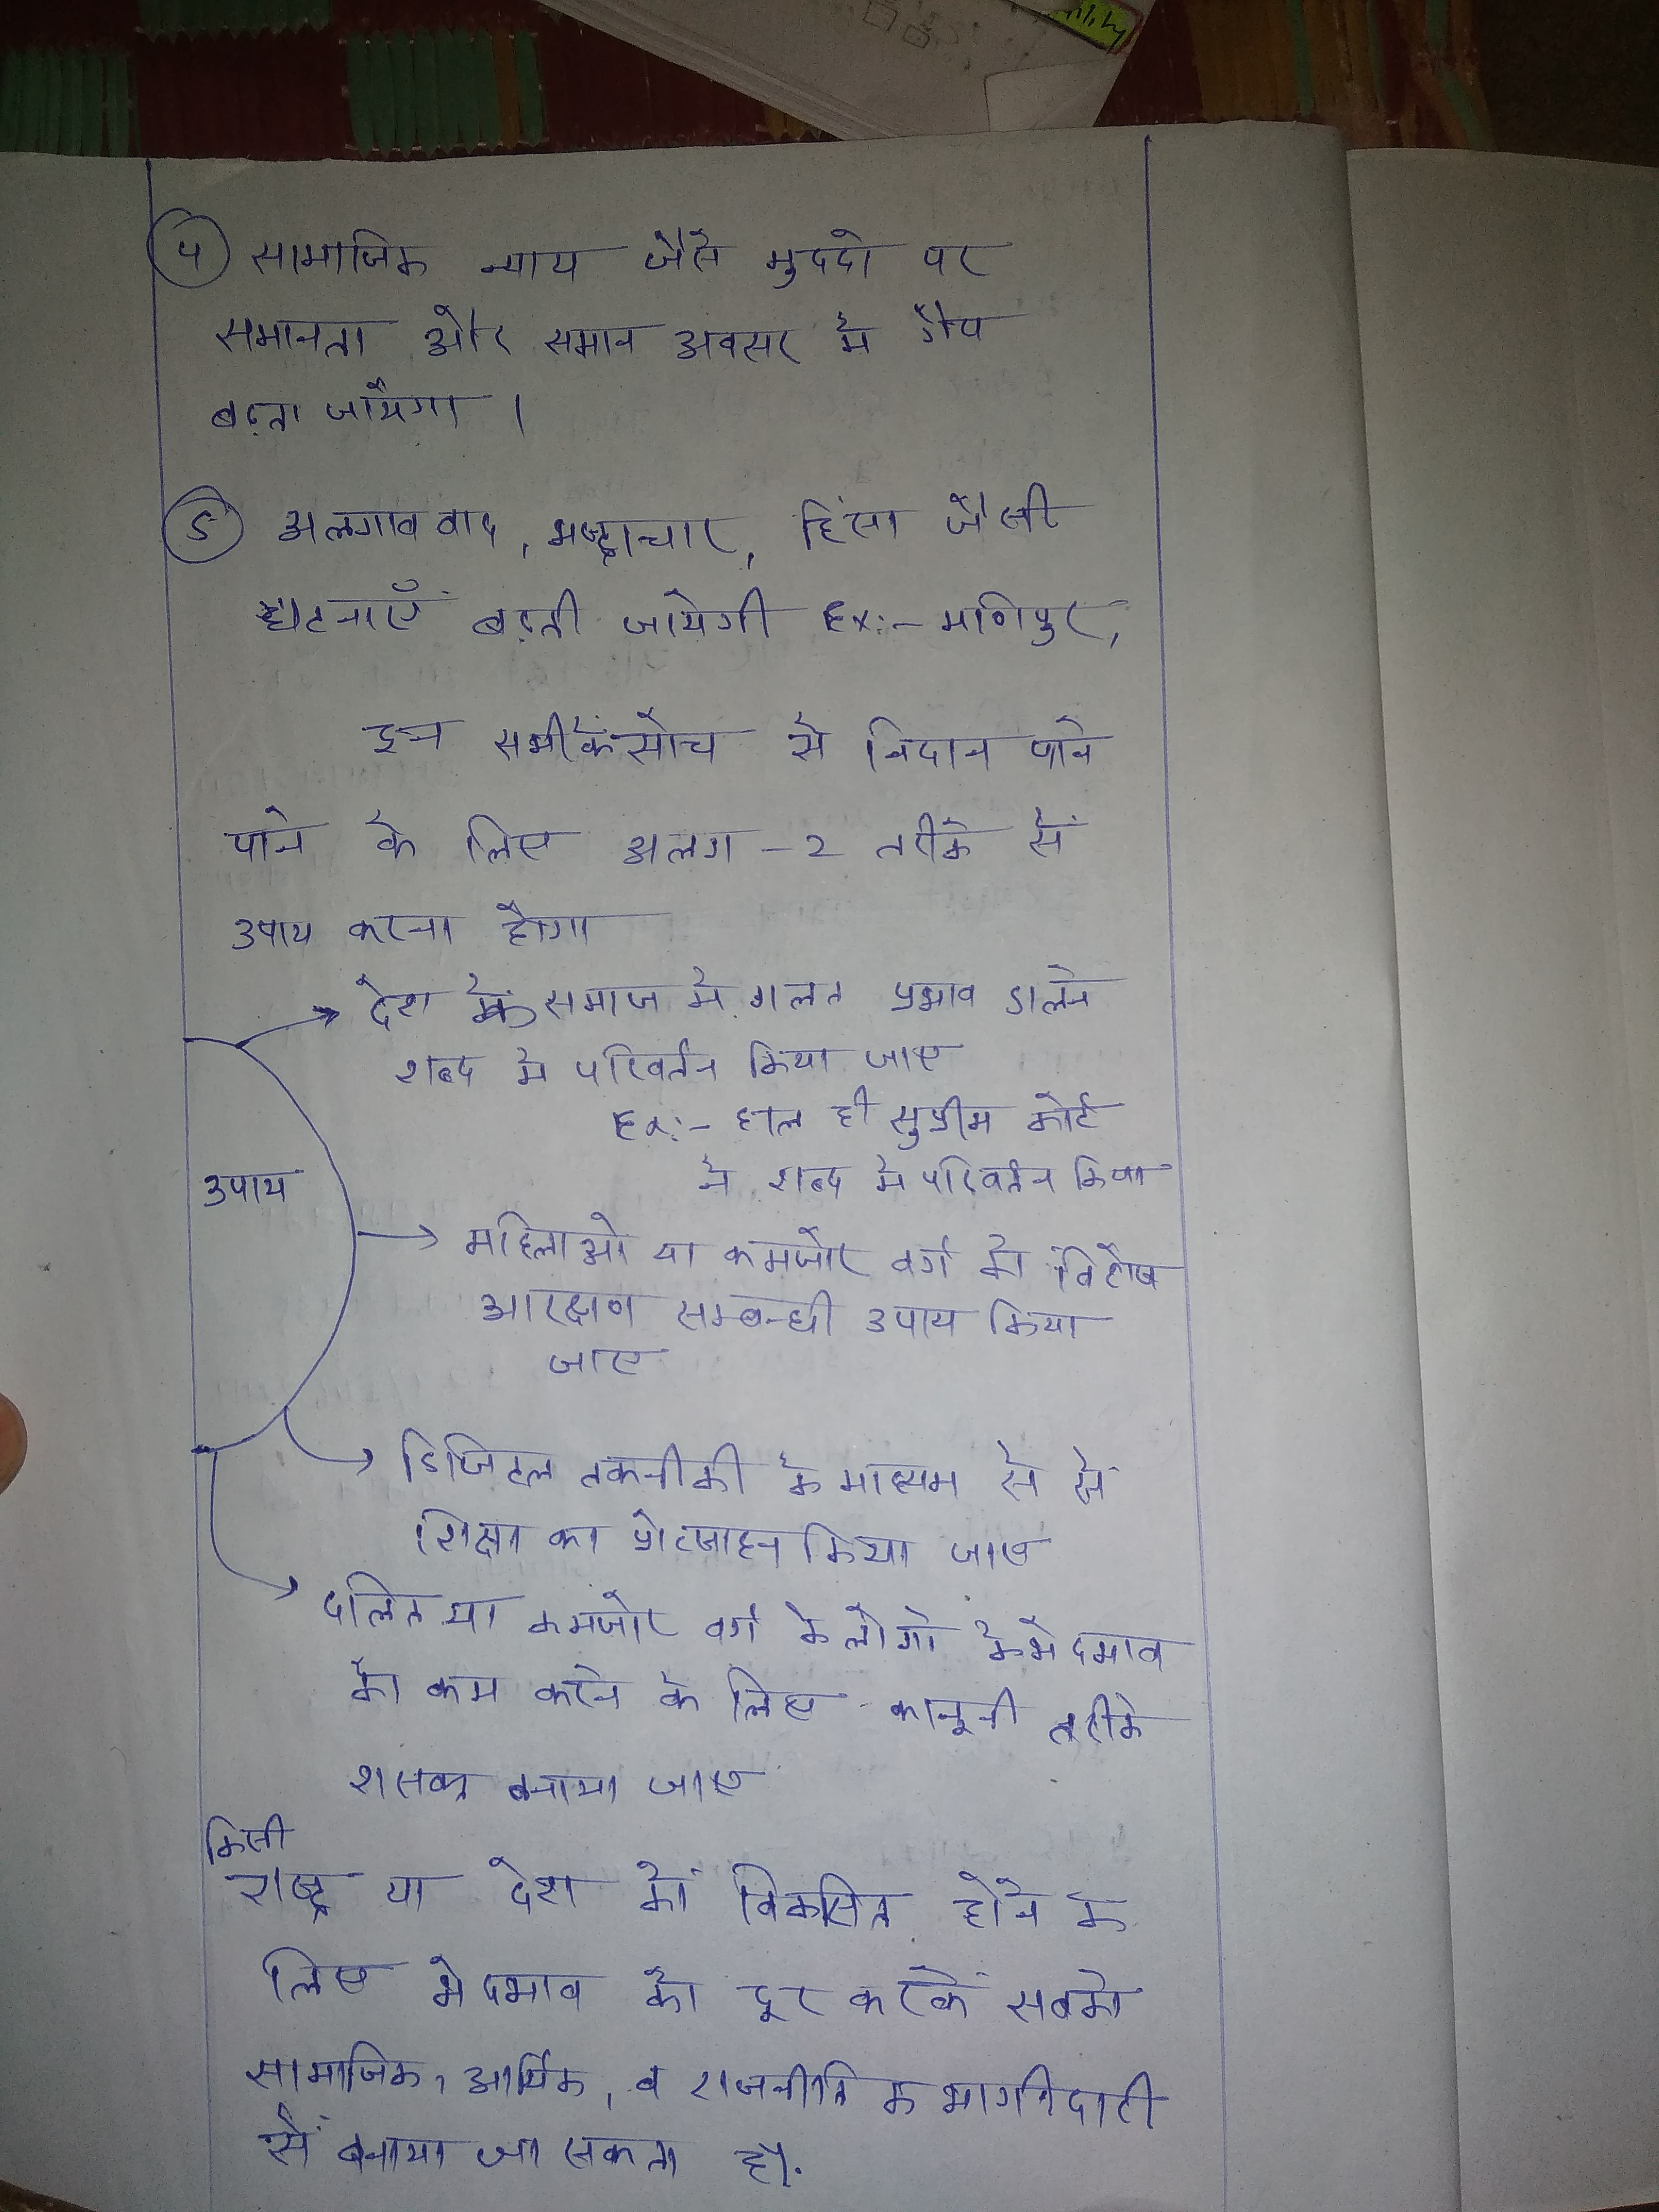 ४ सामाजिक न्याय जैसे मुददो पर
समानता और समान अवसर मे गैप
बढ़ता जायेगा ।
5 अलगाववाद, भष्ट्राचार, हिंसा जैसी
घटनाएँ बढ़ती जायेगी Ex:- मणिपुर,
इन सभी के सोच से निदान पाने
पाने के लिए अलग -2 तरीके सें
उपाय करना होगा
देश के समाज मे गलत प्रभाव डालने
शब्द मे परिवर्तन किया जाए
Ex:- हाल ही सुप्रीम कोर्ट
ने शब्द मे परिवर्तन किया
उपाय
महिलाओ या कमजोर वर्ग को विशेष
आरक्षण सम्बन्धी उपाय किया
जाए
डिजिटल तकनीकी के माध्यम से सें
शिक्षा का प्रोत्साहन किया जाए
दलित या कमजोर वर्ग के लोगो के भेदभाव
को कम करने के लिए कानूनी तरीके
शसक्त बनाया जाए
किसी
राष्ट्र या देश कों विकसित होने के
लिए भेदभाव को दूर करकें सबको
सामाजिक, आर्थिक, व राजनीतिक भागीदारी
सें बनाया जा सकता हैं.